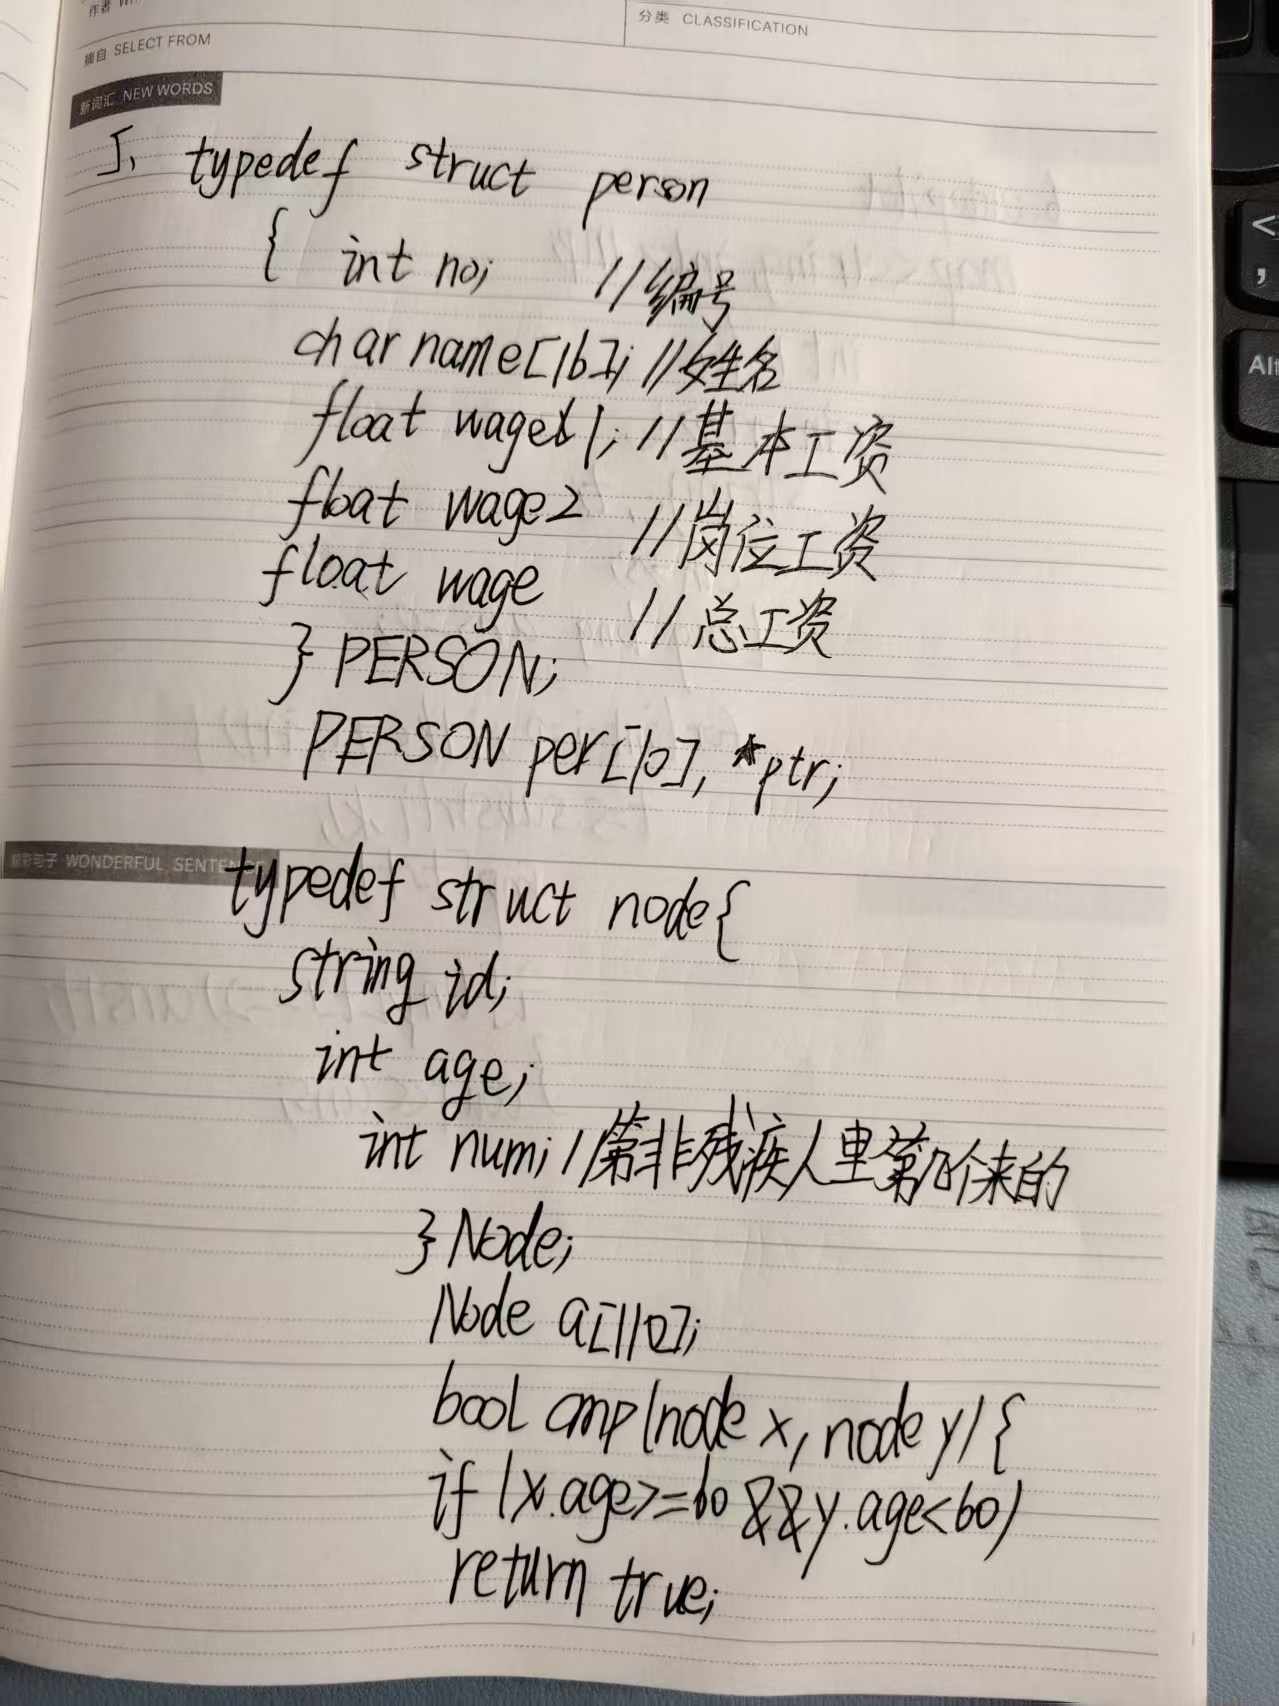 作者
分类 CLASSIFICATION
摘自 SELECT FROM
新词汇 NEW WORDS
5、 typedef struct person
{ int no; //编号
char name[16]; //姓名
float wage1; //基本工资
float wage2 //岗位工资
float wage //总工资
} PERSON;
PERSON per[10], *ptr;
精彩句子 WONDERFUL SENTENCE
typedef struct node{
string id;
int age;
int num; //第非残疾人里第几个来的
} Node;
Node a[110];
bool cmp(node x, node y){
if (x.age>=60 && y.age<60)
return true;
Alt